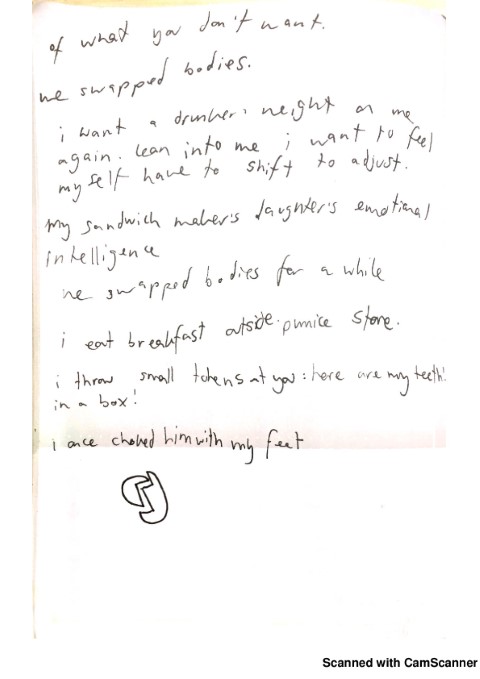 of what you don't want.
we swapped bodies.
i want a drunker weight on me
again. lean into me i want to feel
myself have to shift to adjust.
my sandwich maker's daughter's emotional
intelligence
we swapped bodies for a while
i eat breakfast outside. pumice stone.
i throw small tokens at you: here are my teeth!
in a box!
i once choked him with my feet
Scanned with CamScanner